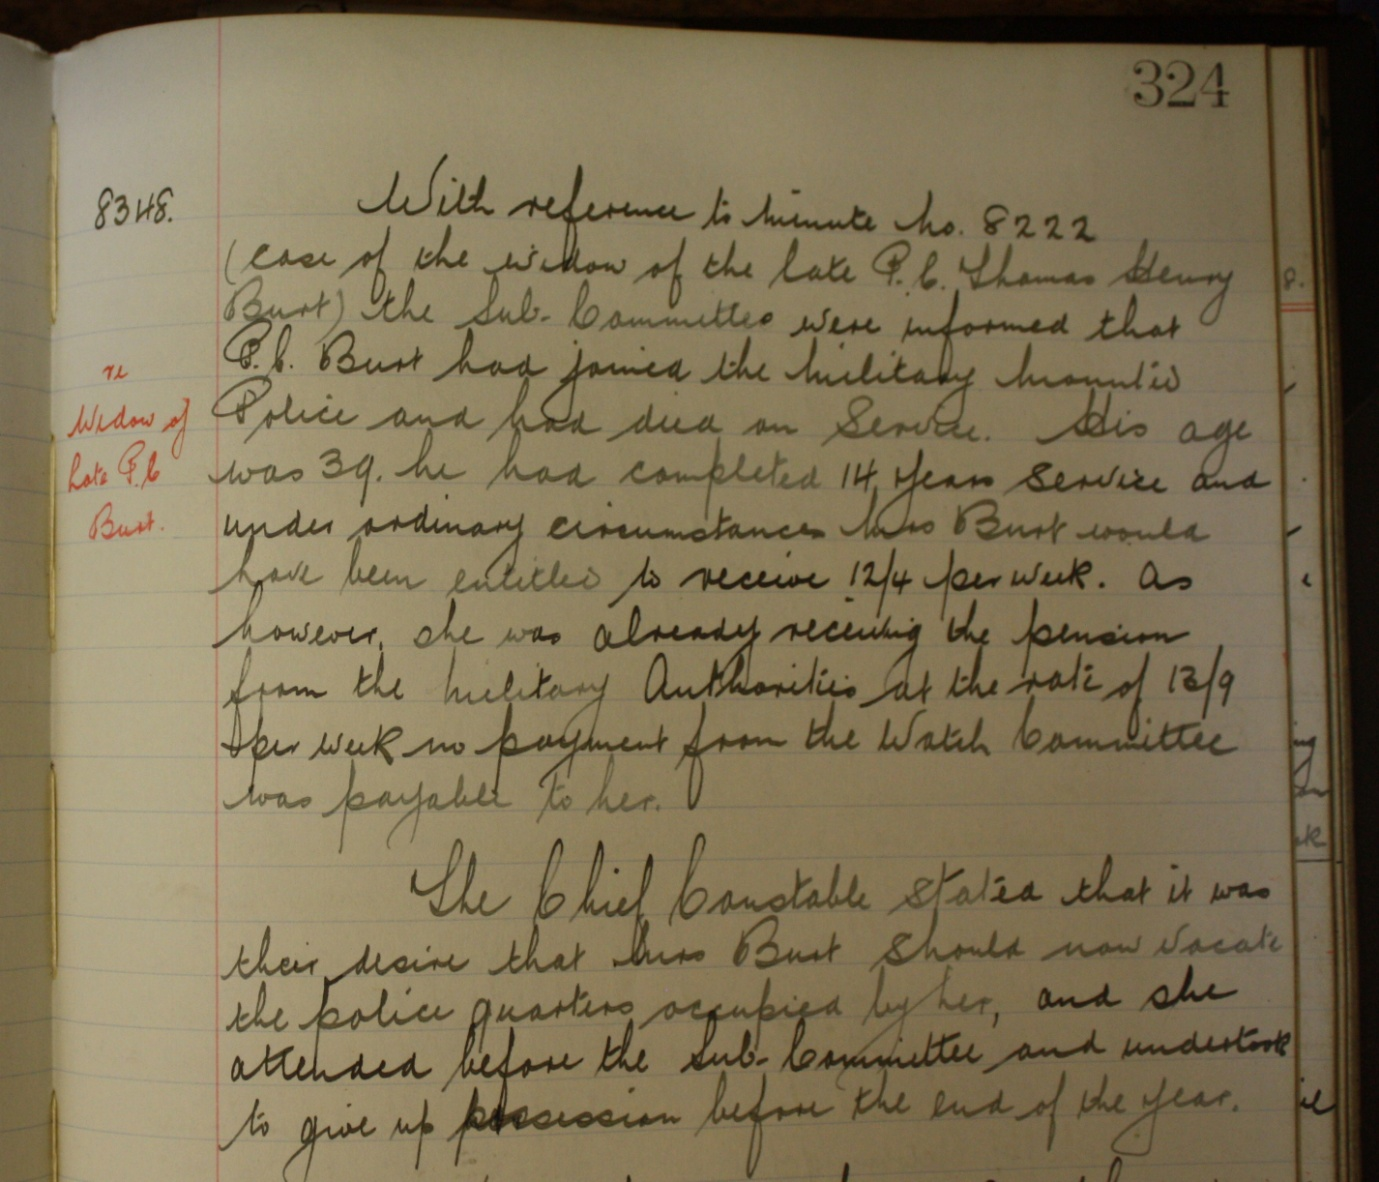 324
8348.
With reference to Minute No. 8222
(case of the widow of the late P.C. Thomas Henry
Burt) the Sub-Committee were informed that
P.C. Burt had joined the Military Mounted
re
Widow of
late P.C
Burt.
Police and had died on Service. His age
was 39. he had completed 14 years Service and
under ordinary circumstances Mrs Burt would
have been entitled to receive 12/4 per week. As
however, she was already receiving the pension
from the Military Authorities at the rate of 13/9
per week no payment from the Watch Committee
was payable to her.
The Chief Constable stated that it was
their desire that Mrs Burt should now vacate
the police quarters occupied by her, and she
attended before the Sub-Committee and undertook
to give up possession before the end of the year.